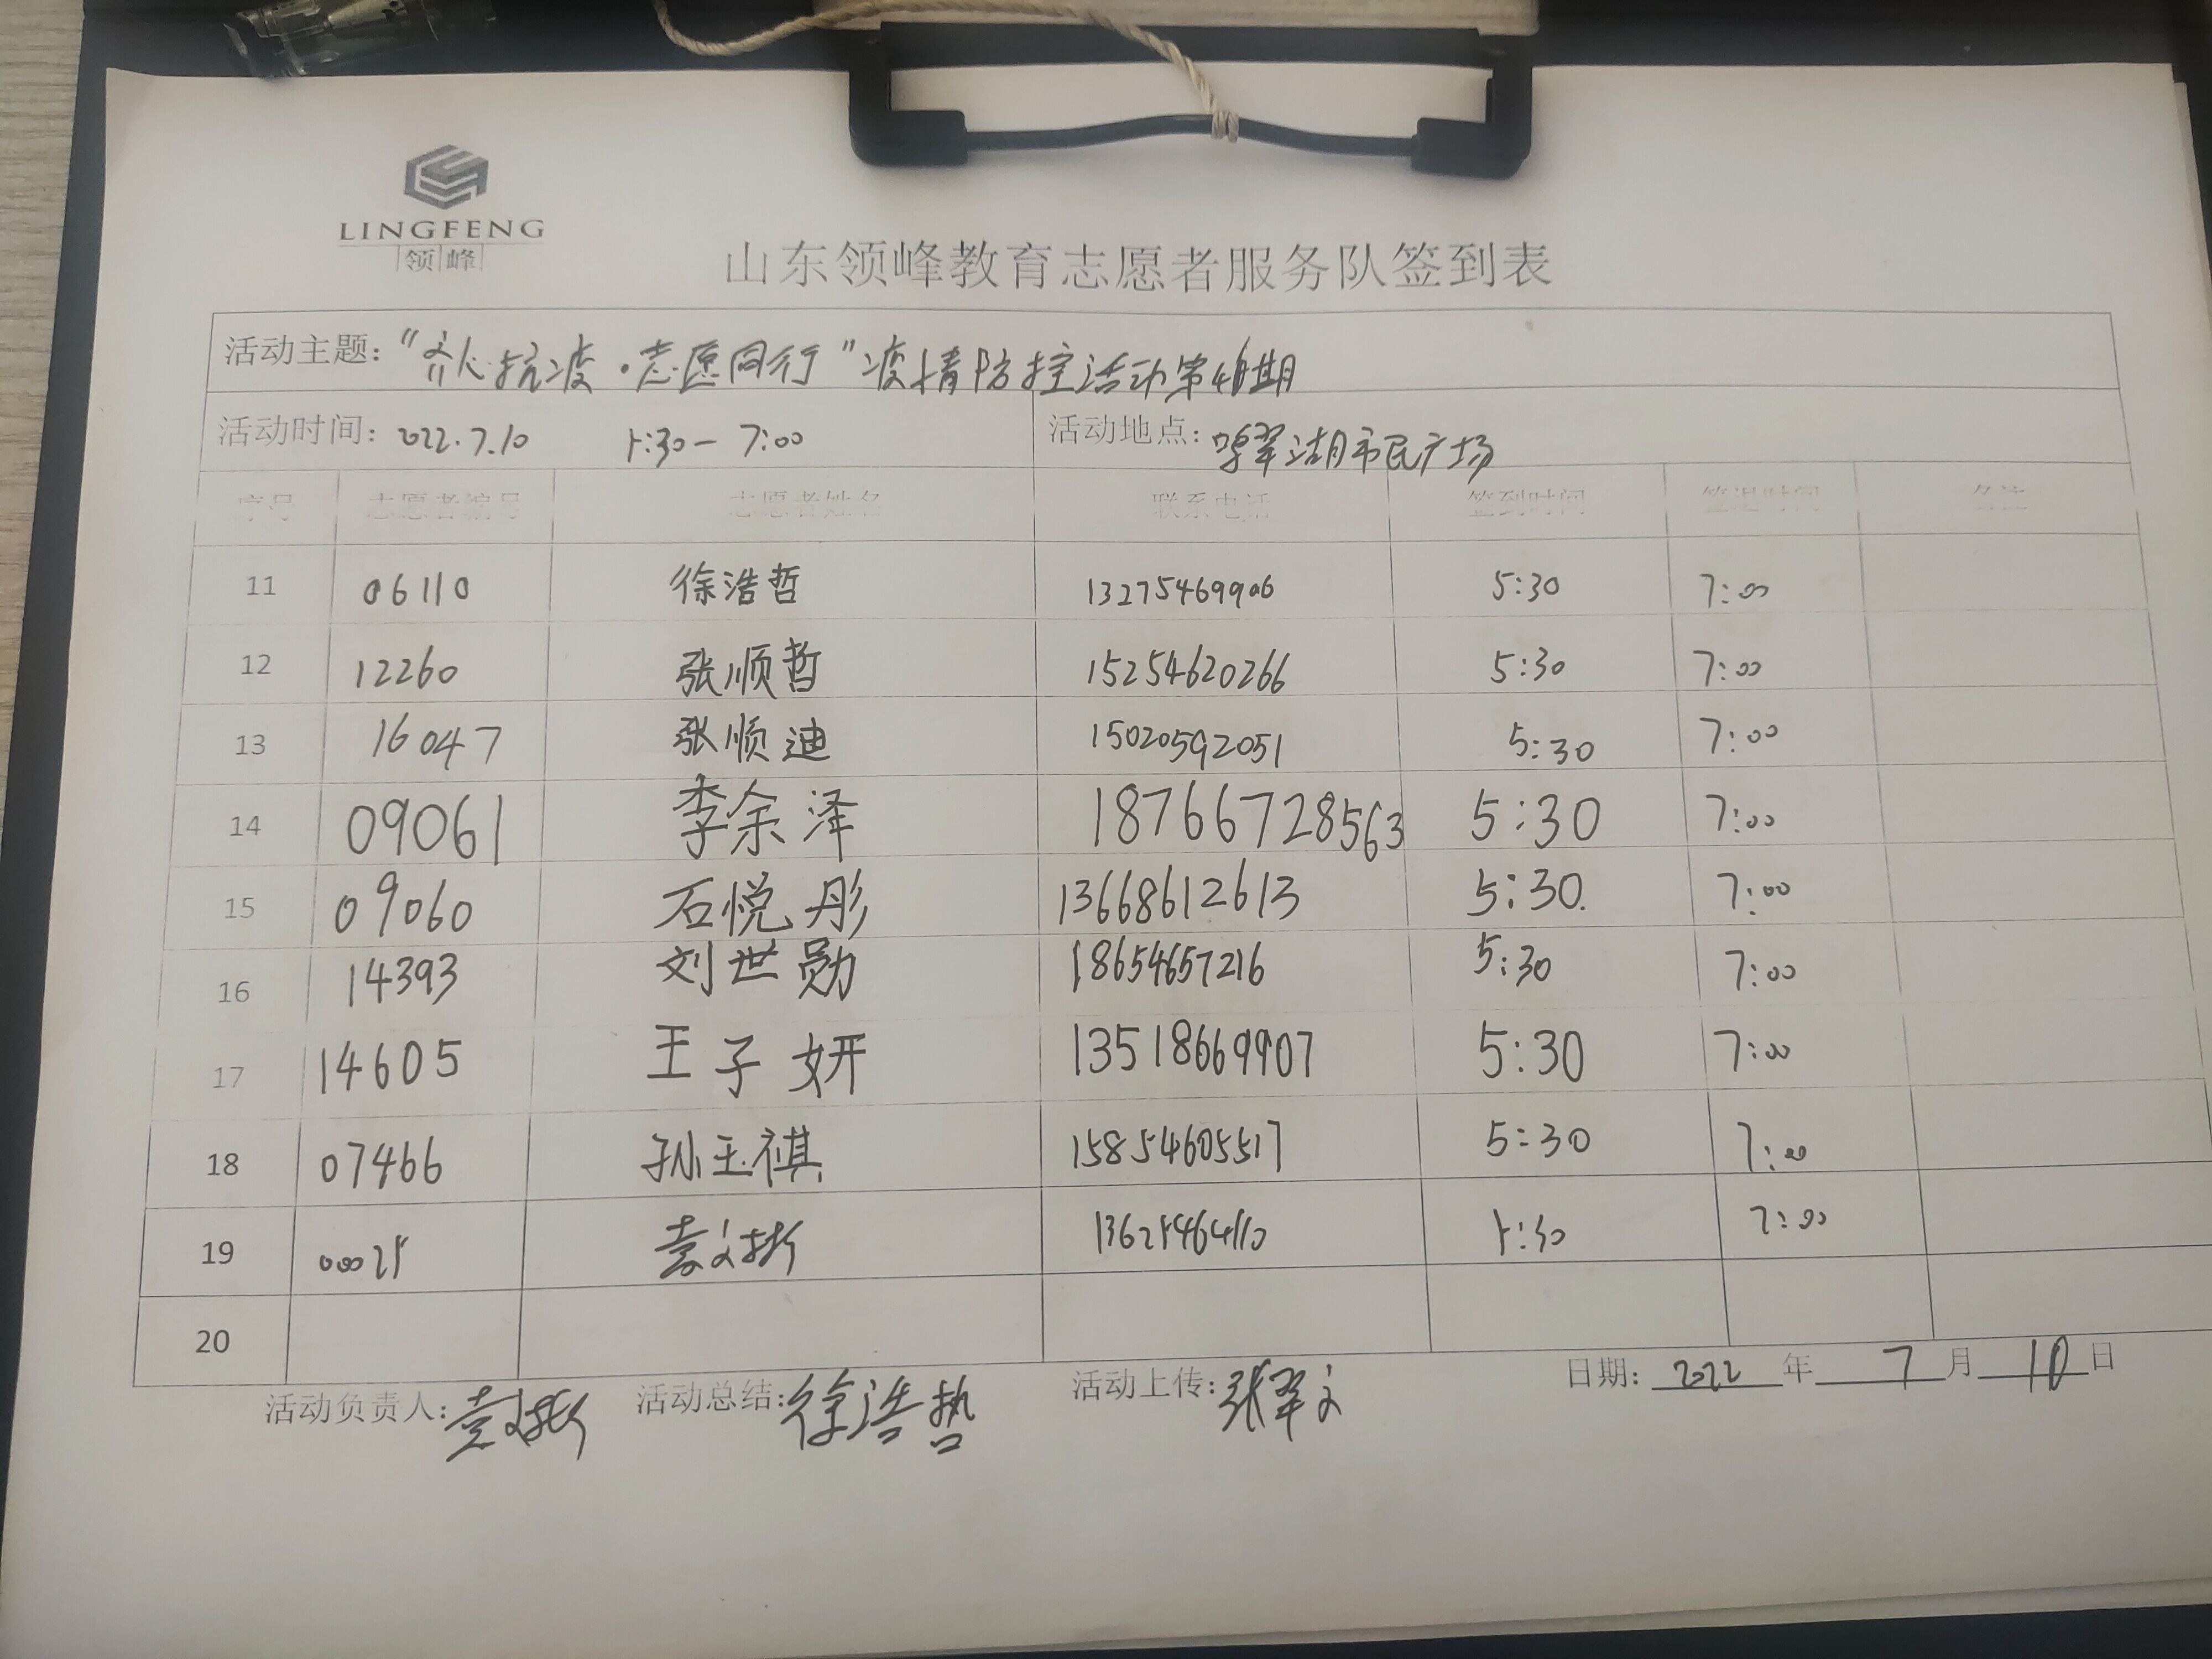 LINGFENG
领峰
山东领峰教育志愿者服务队签到表
活动主题：“齐心抗疫·志愿同行”疫情防控活动第48期
活动时间：2022.7.10 5:30—7:00 活动地点：鸣翠湖市民广场
序号 志愿者编号 志愿者姓名 联系电话 签到时间 签退时间 备注
11 06110 徐浩哲 13275469906 5:30 7:00
12 12260 张顺哲 15254620266 5:30 7:00
13 16047 张顺迪 15020592051 5:30 7:00
14 09061 李余泽 18766728563 5:30 7:00
15 09060 石悦彤 13668612613 5:30 7:00
16 14393 刘世勋 18654657216 5:30 7:00
17 14605 王子妍 13518669907 5:30 7:00
18 07466 孙玉祺 15854605517 5:30 7:00
19 00025 袁文 5:30 7:00
20
活动负责人：袁文 活动总结：徐浩哲 活动上传：张翠文 日期：2022年7月10日